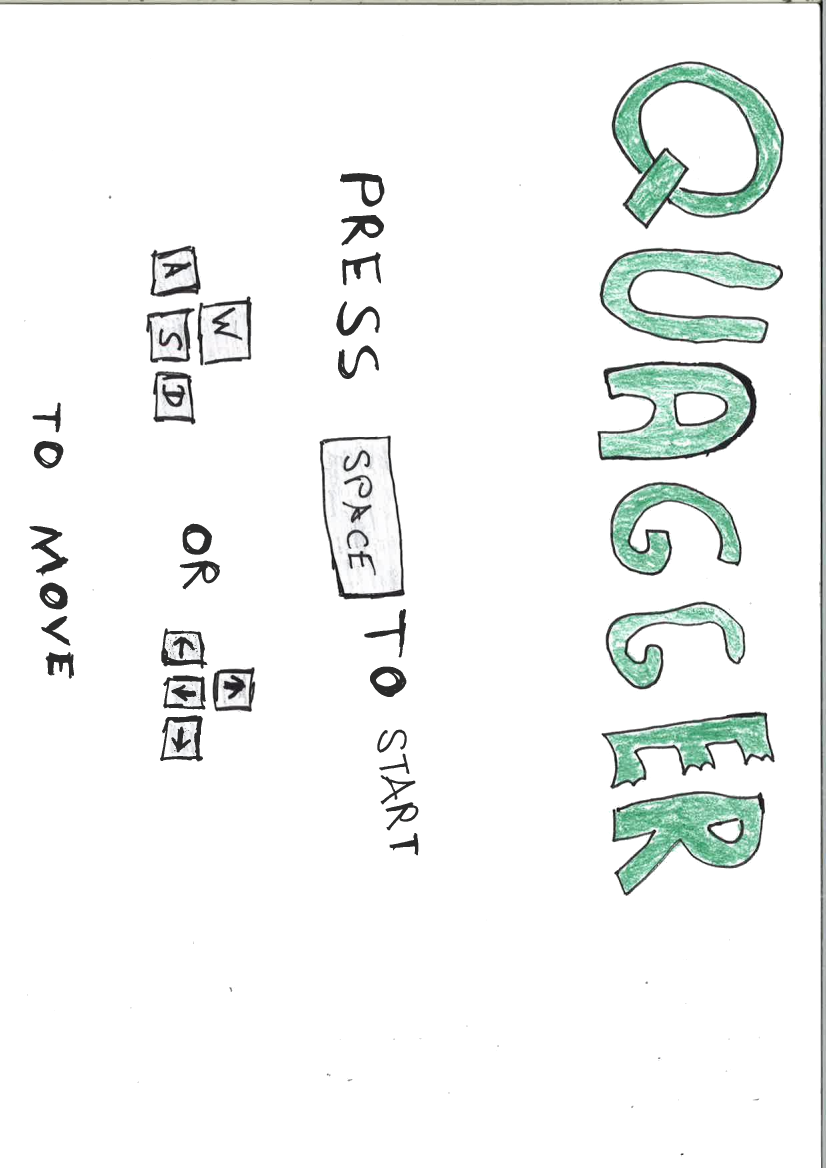 QUAGGER
PRESS SPACE TO START
W ↑
A S D OR ← ↓ →
TO MOVE